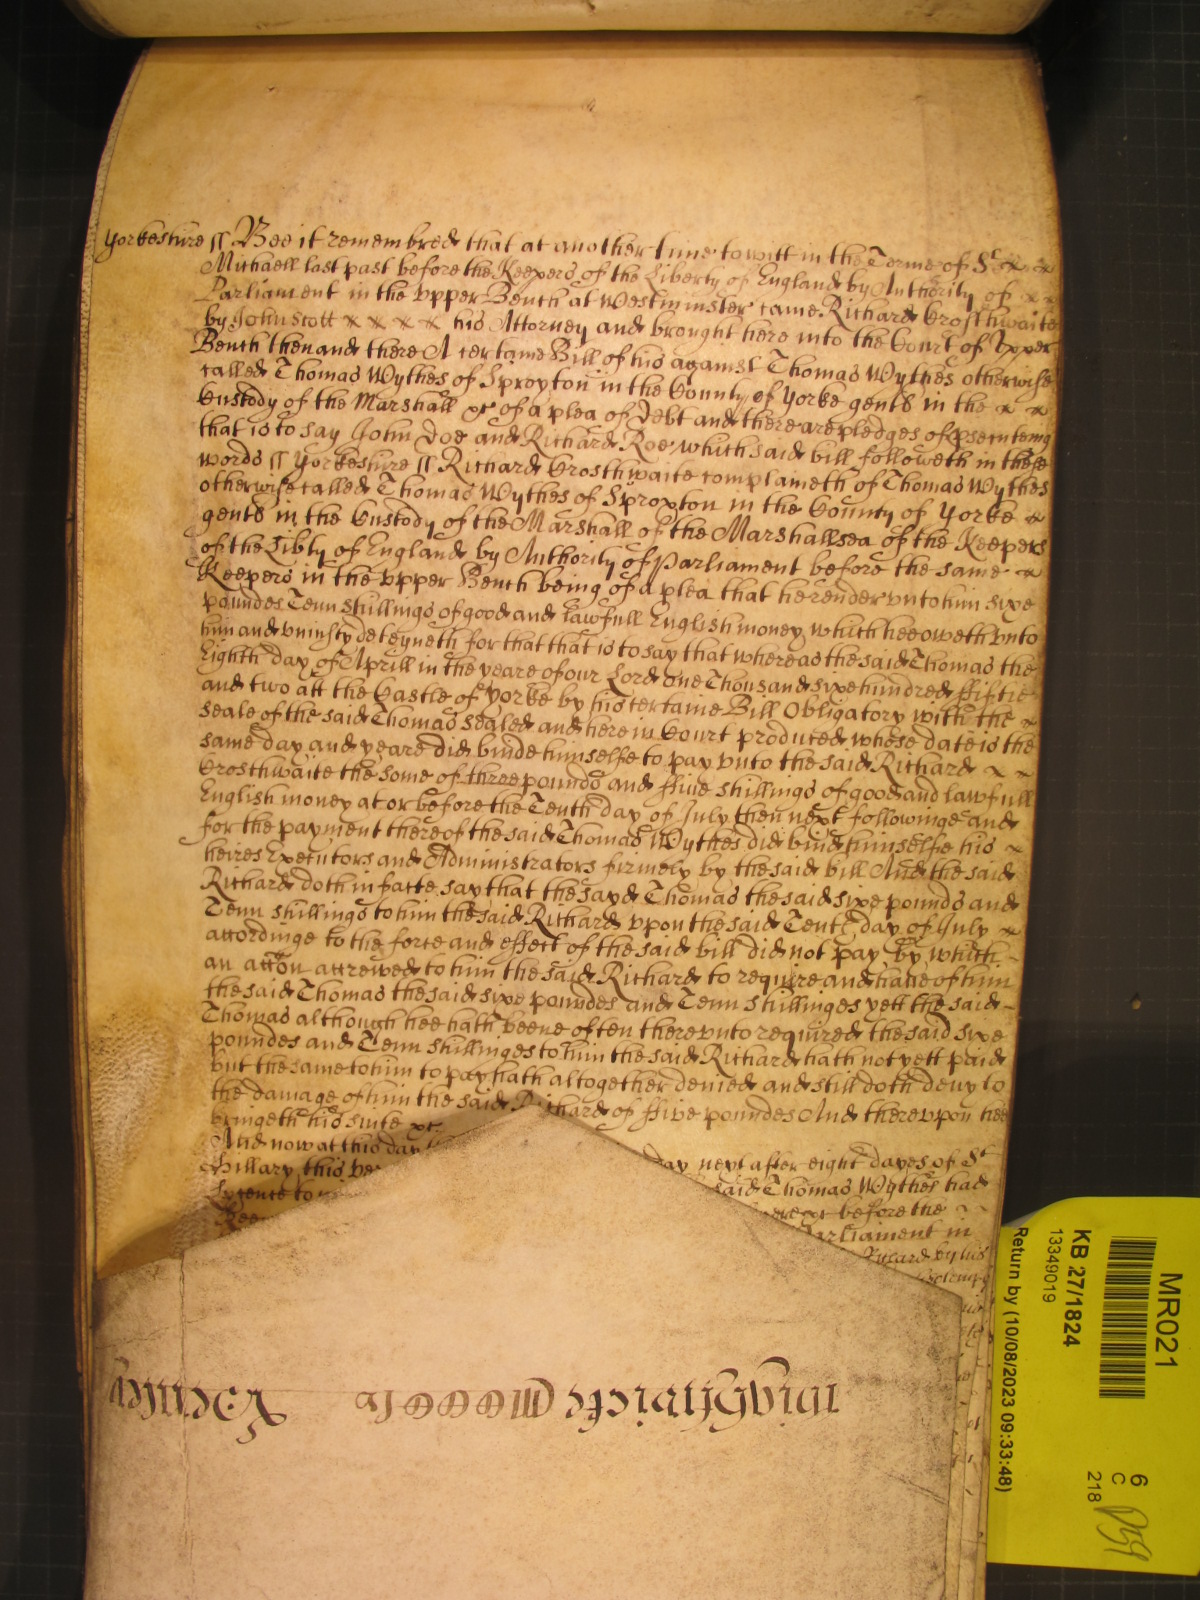 Yorkeshire ss Bee it remembred that at another time to witt in the Terme of St
Michaell last past before the Keepers of the Liberty of England by Authority of
Parliament in the vpper Bench at Westminster came Richard Crosthwaite
by John Scott his Attorney and brought here into the Court of Vpper
Bench then and there A certaine Bill of his against Thomas Wythes otherwise
called Thomas Wythes of Sproxton in the County of Yorke gent in the
Custody of the Marshall &c of a plea of Debt and there are pledges of prsecuteing
that is to say John Doe and Richard Roe which said bill followeth in these
words ss Yorkeshire ss Richard Crosthwaite complaineth of Thomas Wythes
otherwise called Thomas Wythes of Sproxton in the County of Yorke
gent in the Custody of the Marshall of the Marshallsea of the Keepers
of the Libty of England by Authority of Parliament before the same
Keepers in the vpper Bench being of a plea that he render vnto him sixe
poundes Tenn shillings of good and lawfull English money which hee oweth vnto
him and vniustly deteyneth for that that is to say that whereas the said Thomas the
Eighth day of Aprill in the yeare of our Lord one Thousand sixe hundred ffiftie
and two att the Castle of Yorke by his certaine Bill Obligatory with the
seale of the said Thomas sealed and here in Court produced whose date is the
same day and yeare did binde himselfe to pay vnto the said Richard
Crosthwaite the some of three pounds and ffive shillings of good and lawfull
English money at or before the Tenth day of July then next followinge and
for the payment thereof the said Thomas Wythes did bind himselfe his
heires Executors and Administrators firmely by the said bill And the said
Richard doth in facte say that the sayd Thomas the said sixe pounds and
Tenn shillings to him the said Richard vpon the said Tenth day of July
accordinge to the force and effect of the said bill did not pay by which
an accon accrewed to him the said Richard to require and haue of him
the said Thomas the said sixe poundes and Tenn shillinges yett the said
Thomas although hee hath beene often therevnto required the said sixe
poundes and Tenn shillinges to him the said Richard hath not yett paid
but the same to him to pay hath altogether denied and still doth deny to
the damage of him the said Richard of ffive poundes And therevpon hee
bringeth his suite &c
And now at this day day next after eight dayes of St
Hillary this said Thomas Wythes had
before the
Parliament in
by his
KB 27/1824
13349019
Return by (10/08/2023 09:33:48)
MR021
6
C
218